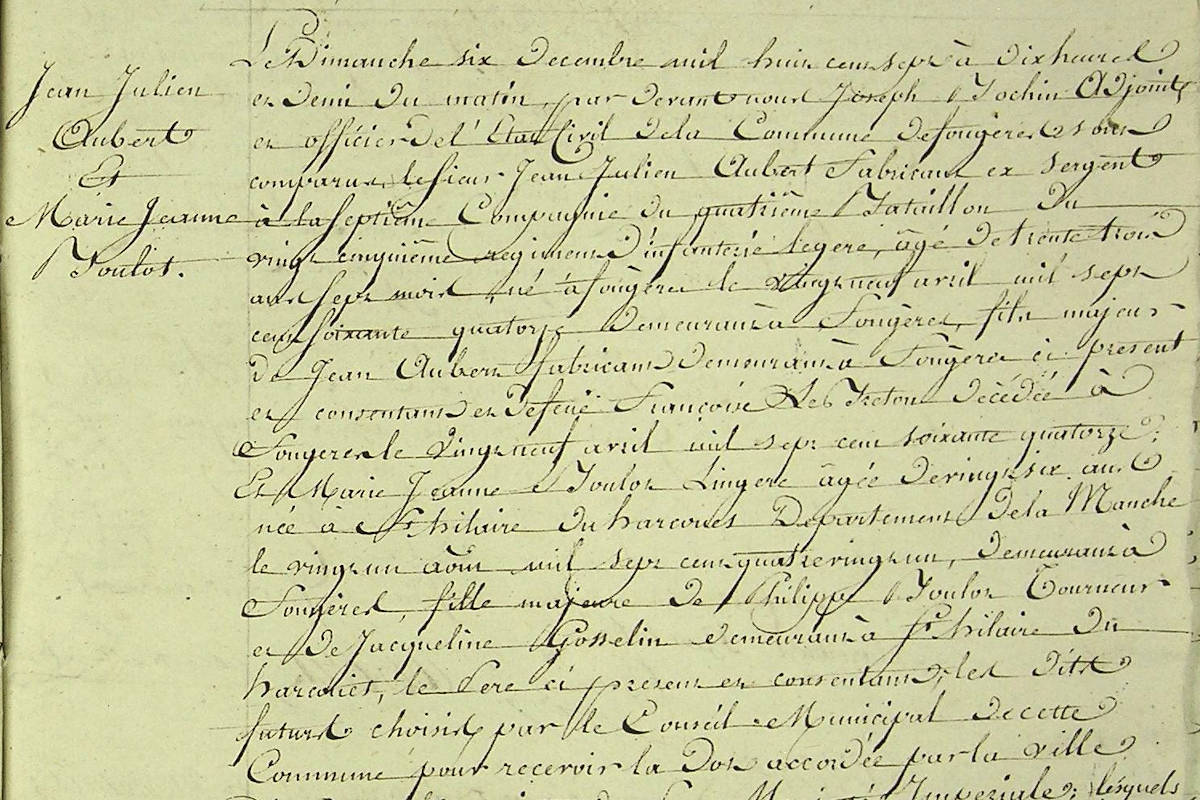 Jean Julien
Aubert
Et
Marie Jeanne
Toulot.
Le Dimanche six Decembre mil huit cent sept à dix heures
et demi du matin, par devant nous Joseph Adjoint
et officier de l'Etat Civil de la Commune de fougeres sont
comparus, le sieur Jean Julien Aubert Fabricant ex Sergent
à la septième Compagnie du quatrième Bataillon du
vingt cinquième regiment d'infanterie legere, âgé de trente trois
ans sept mois, né à fougères le vingt neuf avril mil sept
cent soixante quatorze demeurant à Fougères, fils majeur
de Jean Aubert fabricant demeurant à Fougères ci present
et consentant et de feuë Françoise Le Breton décèdée à
Fougeres le vingt neuf avril mil sept cent soixante quatorze;
Et Marie Jeanne Toulot Lingere âgée de vingt six ans
née à St hilaire du harcouet Departement de la Manche
le vingt un août mil sept cent quatre vingt un, demeurant à
Fougères, fille majeure de Philippe Toulot Tourneur
et de Jacqueline Gosselin demeurant à St hilaire du
harcouet, le Pere ci present et consentant, les dits
futurs choisis par le Conseil Municipal de cette
Commune pour recevoir la Dot accordée par la ville
Majesté Imperiale; lesquels